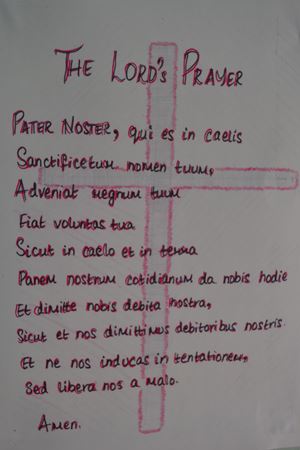 THE LORD'S PRAYER
PATER NOSTER, qui es in caelis
Sanctificetum nomen tuum,
Adveniat regnum tuum
Fiat voluntas tua
Sicut in caelo et in terra
Panem nostrum cotidianum da nobis hodie
Et dimitte nobis debita nostra,
Sicut et nos dimittimus debitoribus nostris.
Et ne nos inducas in tentationem,
Sed libera nos a malo.
Amen.